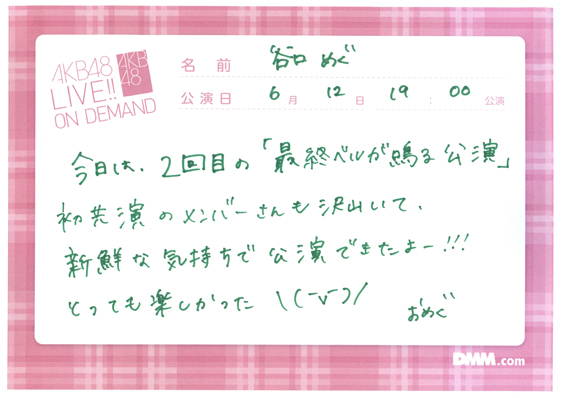 AKB48
LIVE!!
ON DEMAND
AKB
48
名前 谷口 めぐ
公演日 6月 12日 19:00 公演
今日は、2回目の「最終ベルが鳴る公演」
初共演のメンバーさんも沢山いて、
新鮮な気持ちで公演できたよー!!!
とっても楽しかった \(ˉvˉ)/
おめぐ
DMM.com